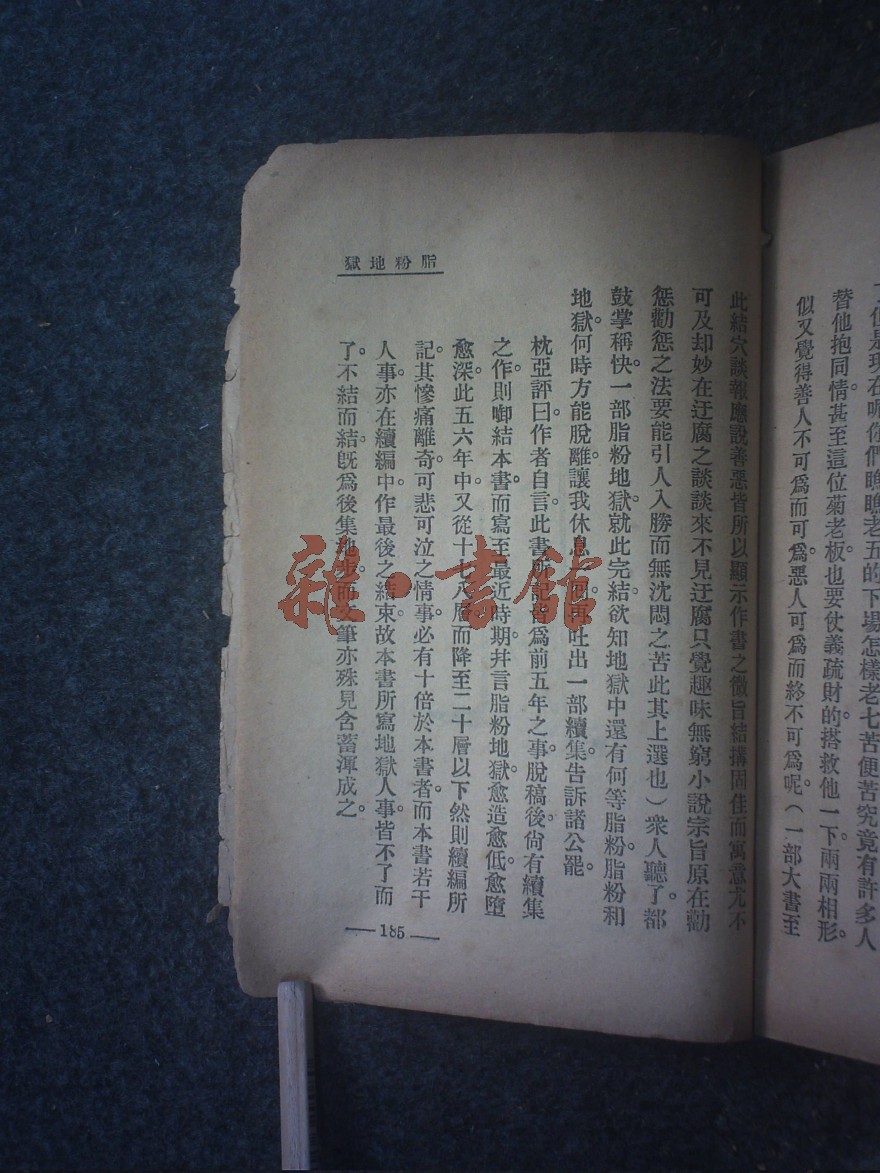 了但是現在呢你們瞧瞧老五的下場怎樣老七苦便苦究竟有許多人
替他抱同情。甚至這位菊老板。也要仗義疏財的。搭救他一下。兩兩相形。
似又覺得善人不可爲而可爲。惡人可爲而終不可爲呢。(一部大書至
脂粉地獄
此結穴談報應說善惡皆所以顯示作書之微旨結搆固佳而寓意尤不
可及却妙在迂腐之談談來不見迂腐只覺趣味無窮小說宗旨原在勸
懲勸懲之法要能引人入勝而無沈悶之苦此其上選也)衆人聽了。都
鼓掌稱快。一部脂粉地獄。就此完結。欲知地獄中還有何等脂粉。脂粉和
地獄。何時方能脫離。讓我休息一回。再吐出一部續集。告訴諸公罷。
枕亞評曰。作者自言。此書所記皆爲前五年之事。脫稿後。尙有續集
之作。則啣結本書。而寫至最近時期。幷言脂粉地獄。愈造愈低。愈墮
愈深。此五六年中。又從十七八層而降至二十層以下。然則續編所
記。其慘痛離奇可悲可泣之情事。必有十倍於本書者。而本書若干
人事。亦在續編中。作最後之結束。故本書所寫地獄人事。皆不了而
了。不結而結。旣爲後集地步。而文筆亦殊見含蓄渾成之。
—185—
雜·書館